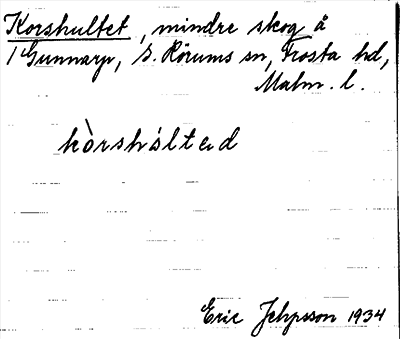 Korshultet, mindre skog å
1 Gunnarp, S. Rörums sn, Frosta hd,
Malm. l.
kòrshúlted
Eric Jepsson 1934